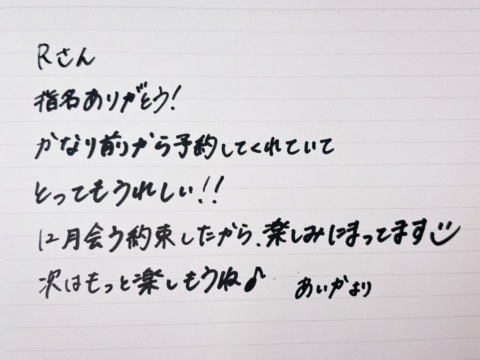 Rさん
指名ありがとう!
かなり前から予約してくれていて
とってもうれしい!!
12月会う約束したから、楽しみにまってます☺
次はもっと楽しもうね♪ あいかより